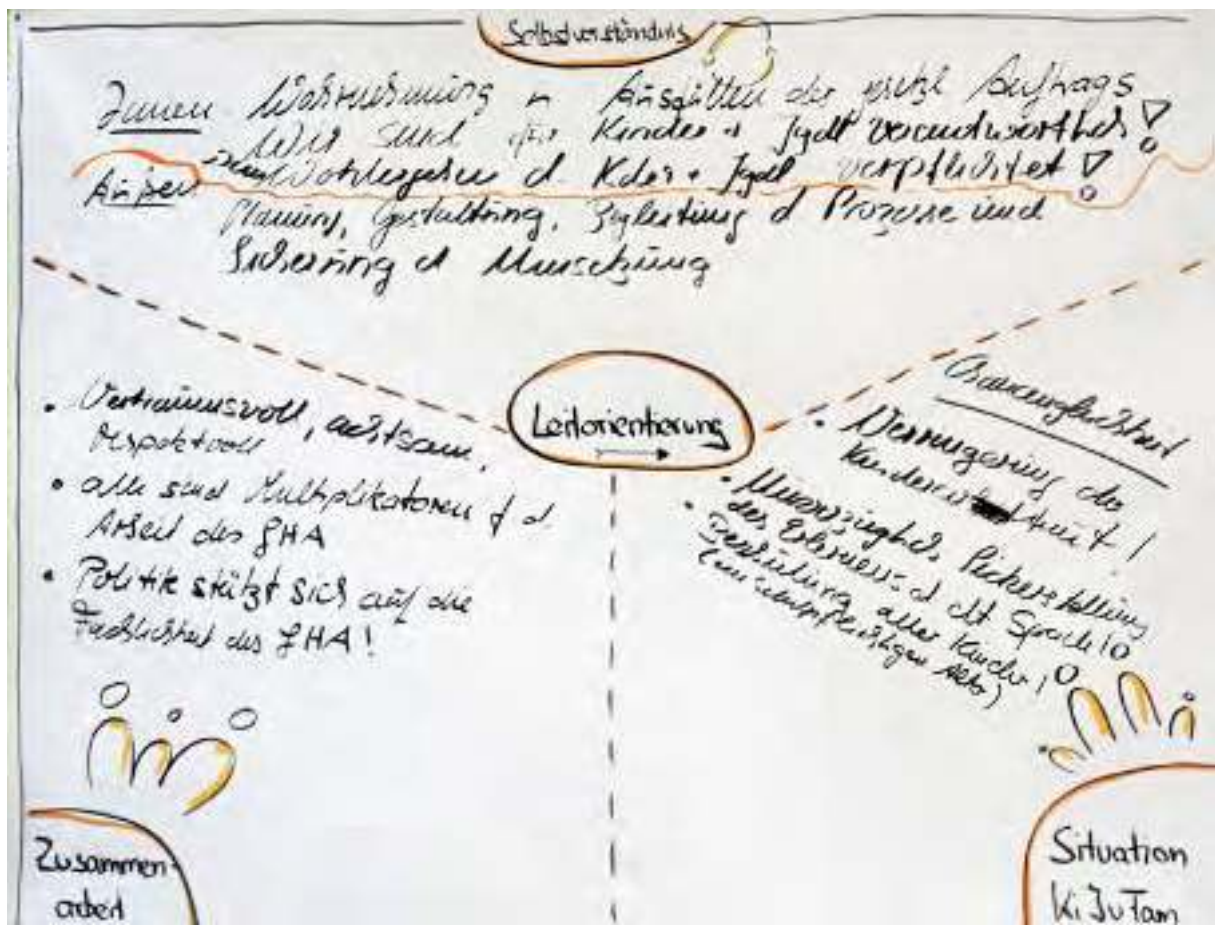 Selbstverständnis
Innen Wahrnehmung u Ausfüllen des gesetzl Auftrags
Wir sind für Kinder + Jgdl verantwortlich!
Außen Wohlergehen d. Kder + Jgdl verpflichtet!
Planung, Gestaltung, Begleitung d Prozesse und
Sicherung d Umsetzung
Leitorientierung
• Vertrauensvoll, achtsam,
respektvoll
• alle sind Multiplikatoren f d.
Arbeit des JHA
• Politik stützt sich auf die
Fachlichkeit des JHA!
Zusammen-
arbeit
Chancengleichheit
• Verringerung der
Kinderarmut!
• Sicherstellung
des Erlernens d dt Sprache!
• Beschulung aller Kinder!
(im schulpflichtigen Alter)
Situation
KiJuFam